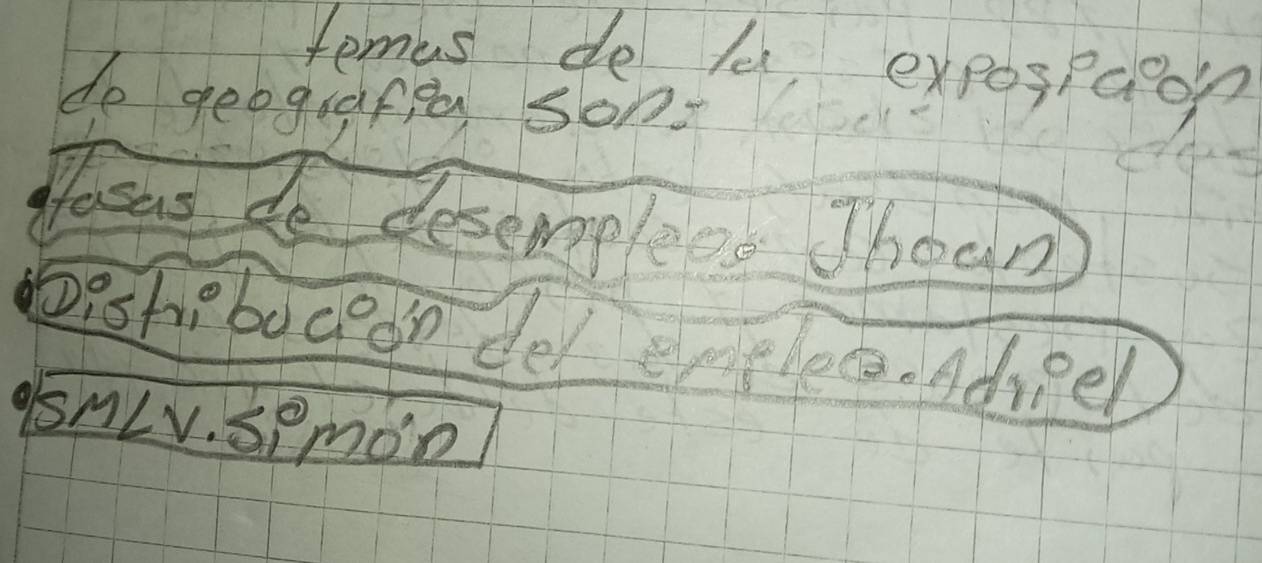 temas de la exposición
de geografía son:
• tasas de desempleo. Jhoan
• Distribución del empleo. Adriel
• SMLV. Simón